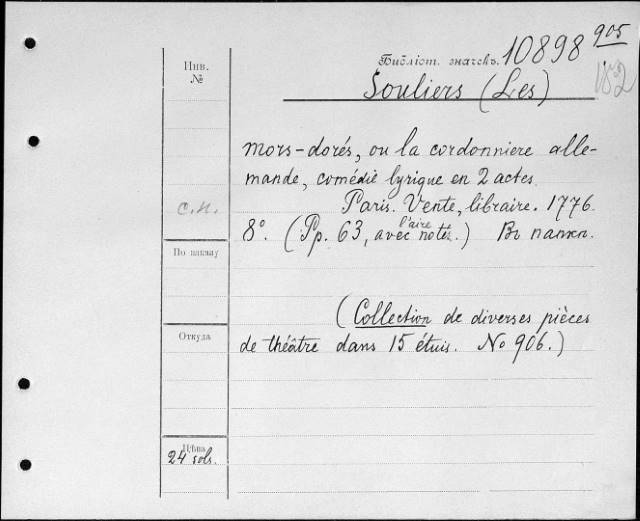 905
Инв.
№
Библіот. значекъ. 10898
182
Souliers (Les)
mors-dorés, ou la cordonniere alle-
mande, comédie lyrique en 2 actes.
С.Н.
Paris. Vente, libraire. 1776.
8°. (Pp. 63, avec l'aire notés.) Въ папкѣ.
По заказу
(Collection de diverses pièces
Откуда
de théâtre dans 15 étuis. No 906.)
Цѣна
24 sols.